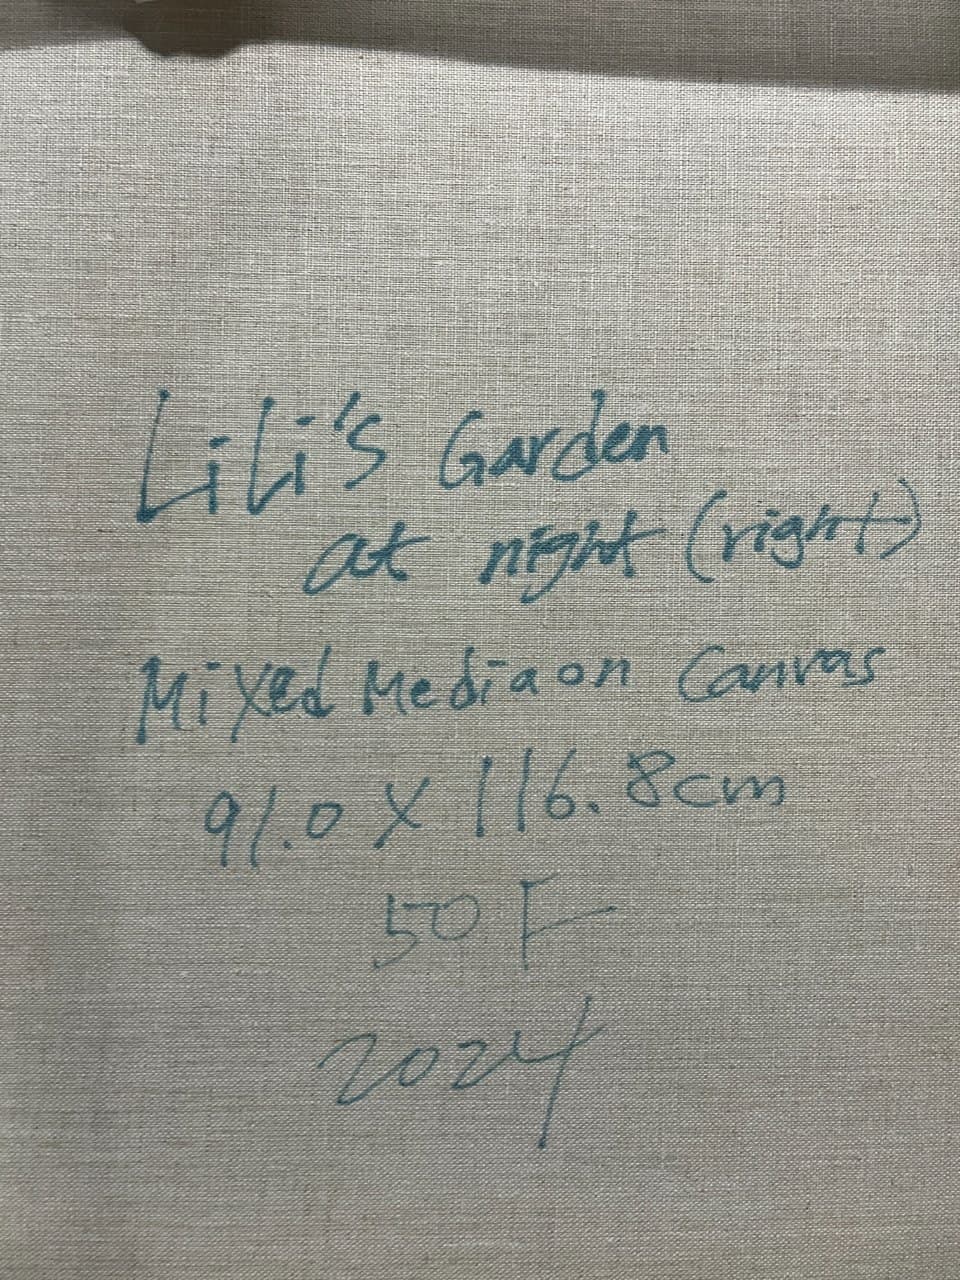 LiLi's Garden
at night (right)
Mixed Media on Canvas
91.0 X 116.8cm
50 F
2024